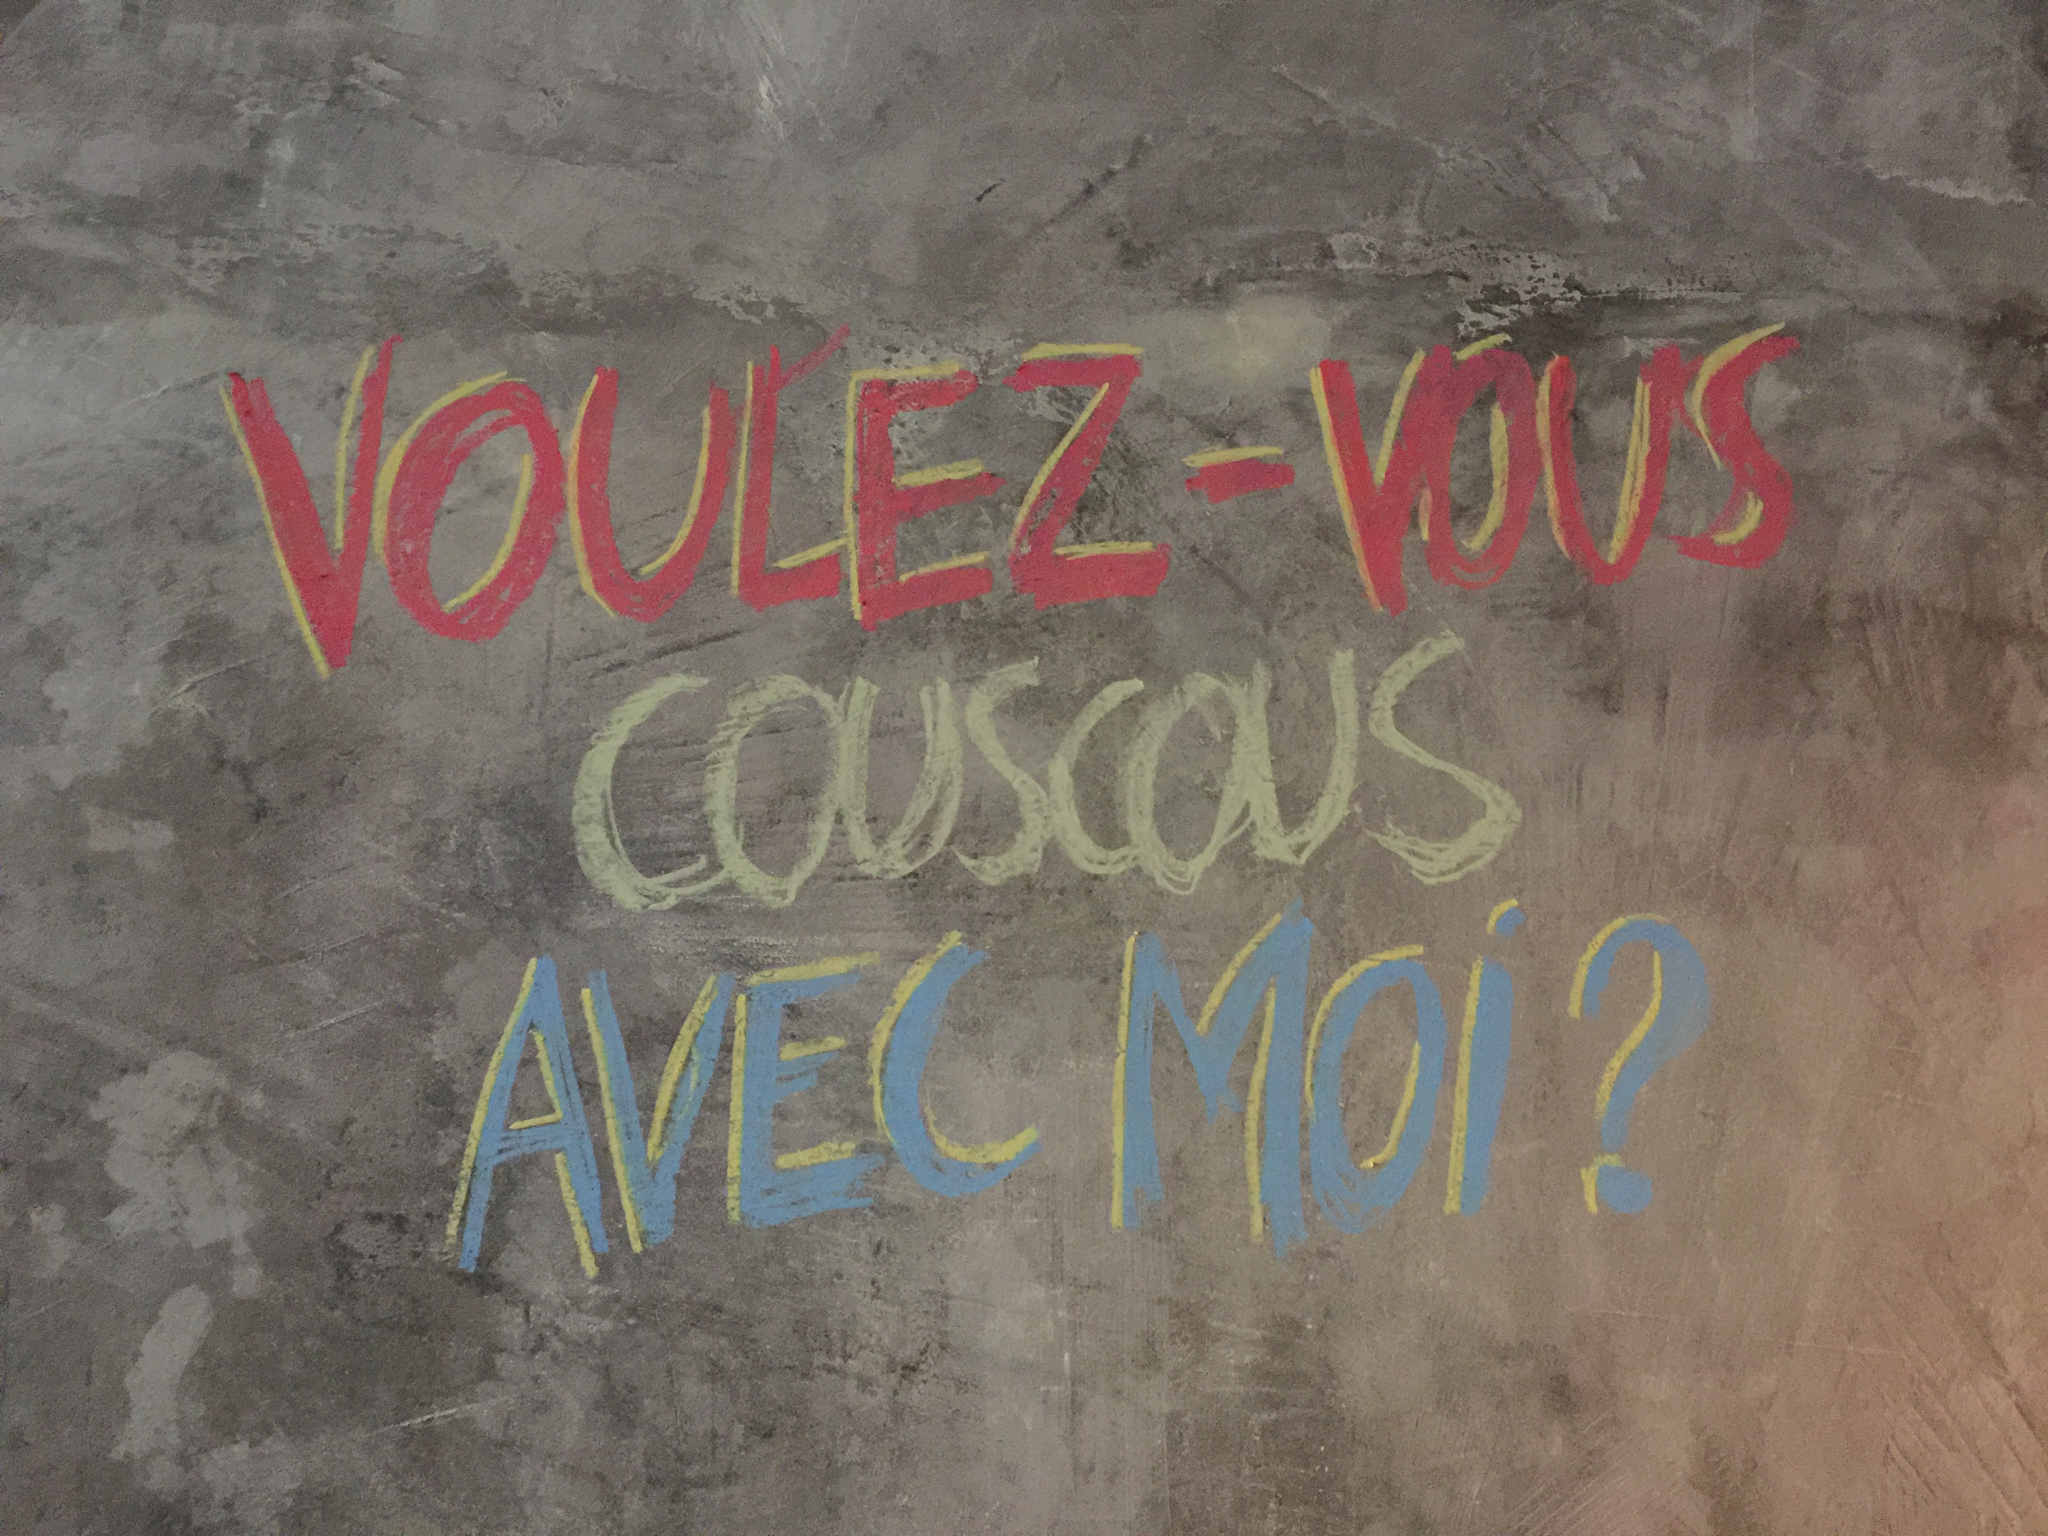 VOULEZ-VOUS
COUSCOUS
AVEC MOi?